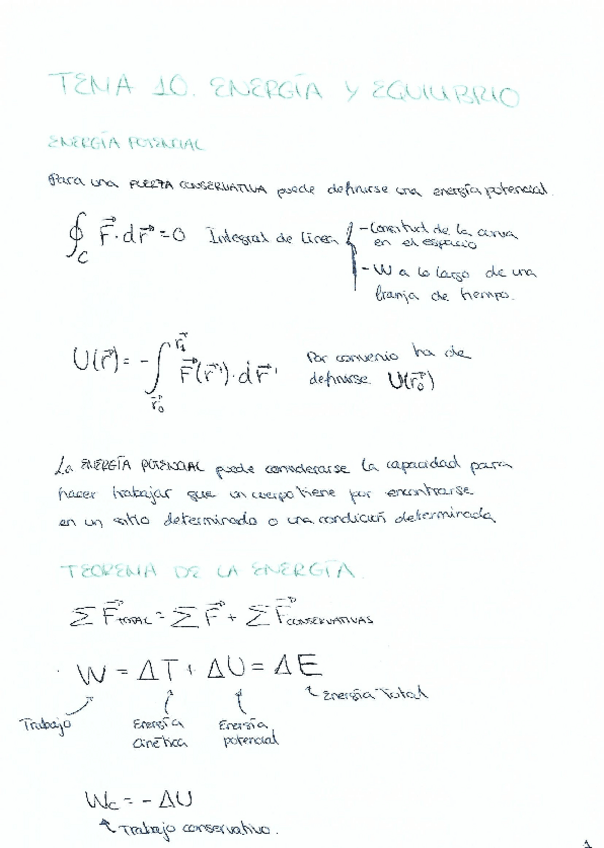 TEMA 10. ENERGÍA Y EQUILIBRIO
ENERGÍA POTENCIAL
Para una FUERZA CONSERVATIVA puede definirse una energía potencial.
∮_C F⃗·dr⃗ = 0 Integral de línea { - Longitud de la curva
en el espacio
- W a lo largo de una
franja de tiempo.
U(r⃗) = - ∫_{r⃗₀}^{r⃗₁} F⃗(r⃗')·dr⃗' Por convenio ha de
definirse U(r⃗₀)
La ENERGÍA POTENCIAL puede considerarse la capacidad para
hacer trabajar que un cuerpo tiene por encontrarse
en un sitio determinado o una condición determinada
TEOREMA DE LA ENERGÍA.
Σ F⃗TOTAL = Σ F⃗ + Σ F⃗CONSERVATIVAS
W = ΔT + ΔU = ΔE
Energía Total
Trabajo Energía Energía
cinética potencial
Wc = - ΔU
Trabajo conservativo.
1